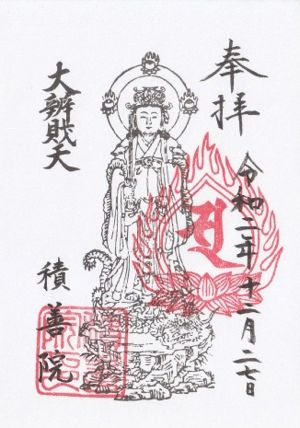 奉拝
令和二年十二月二七日
大辨財天
積善院